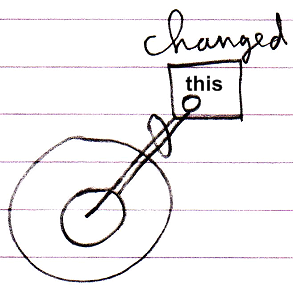 changed
this